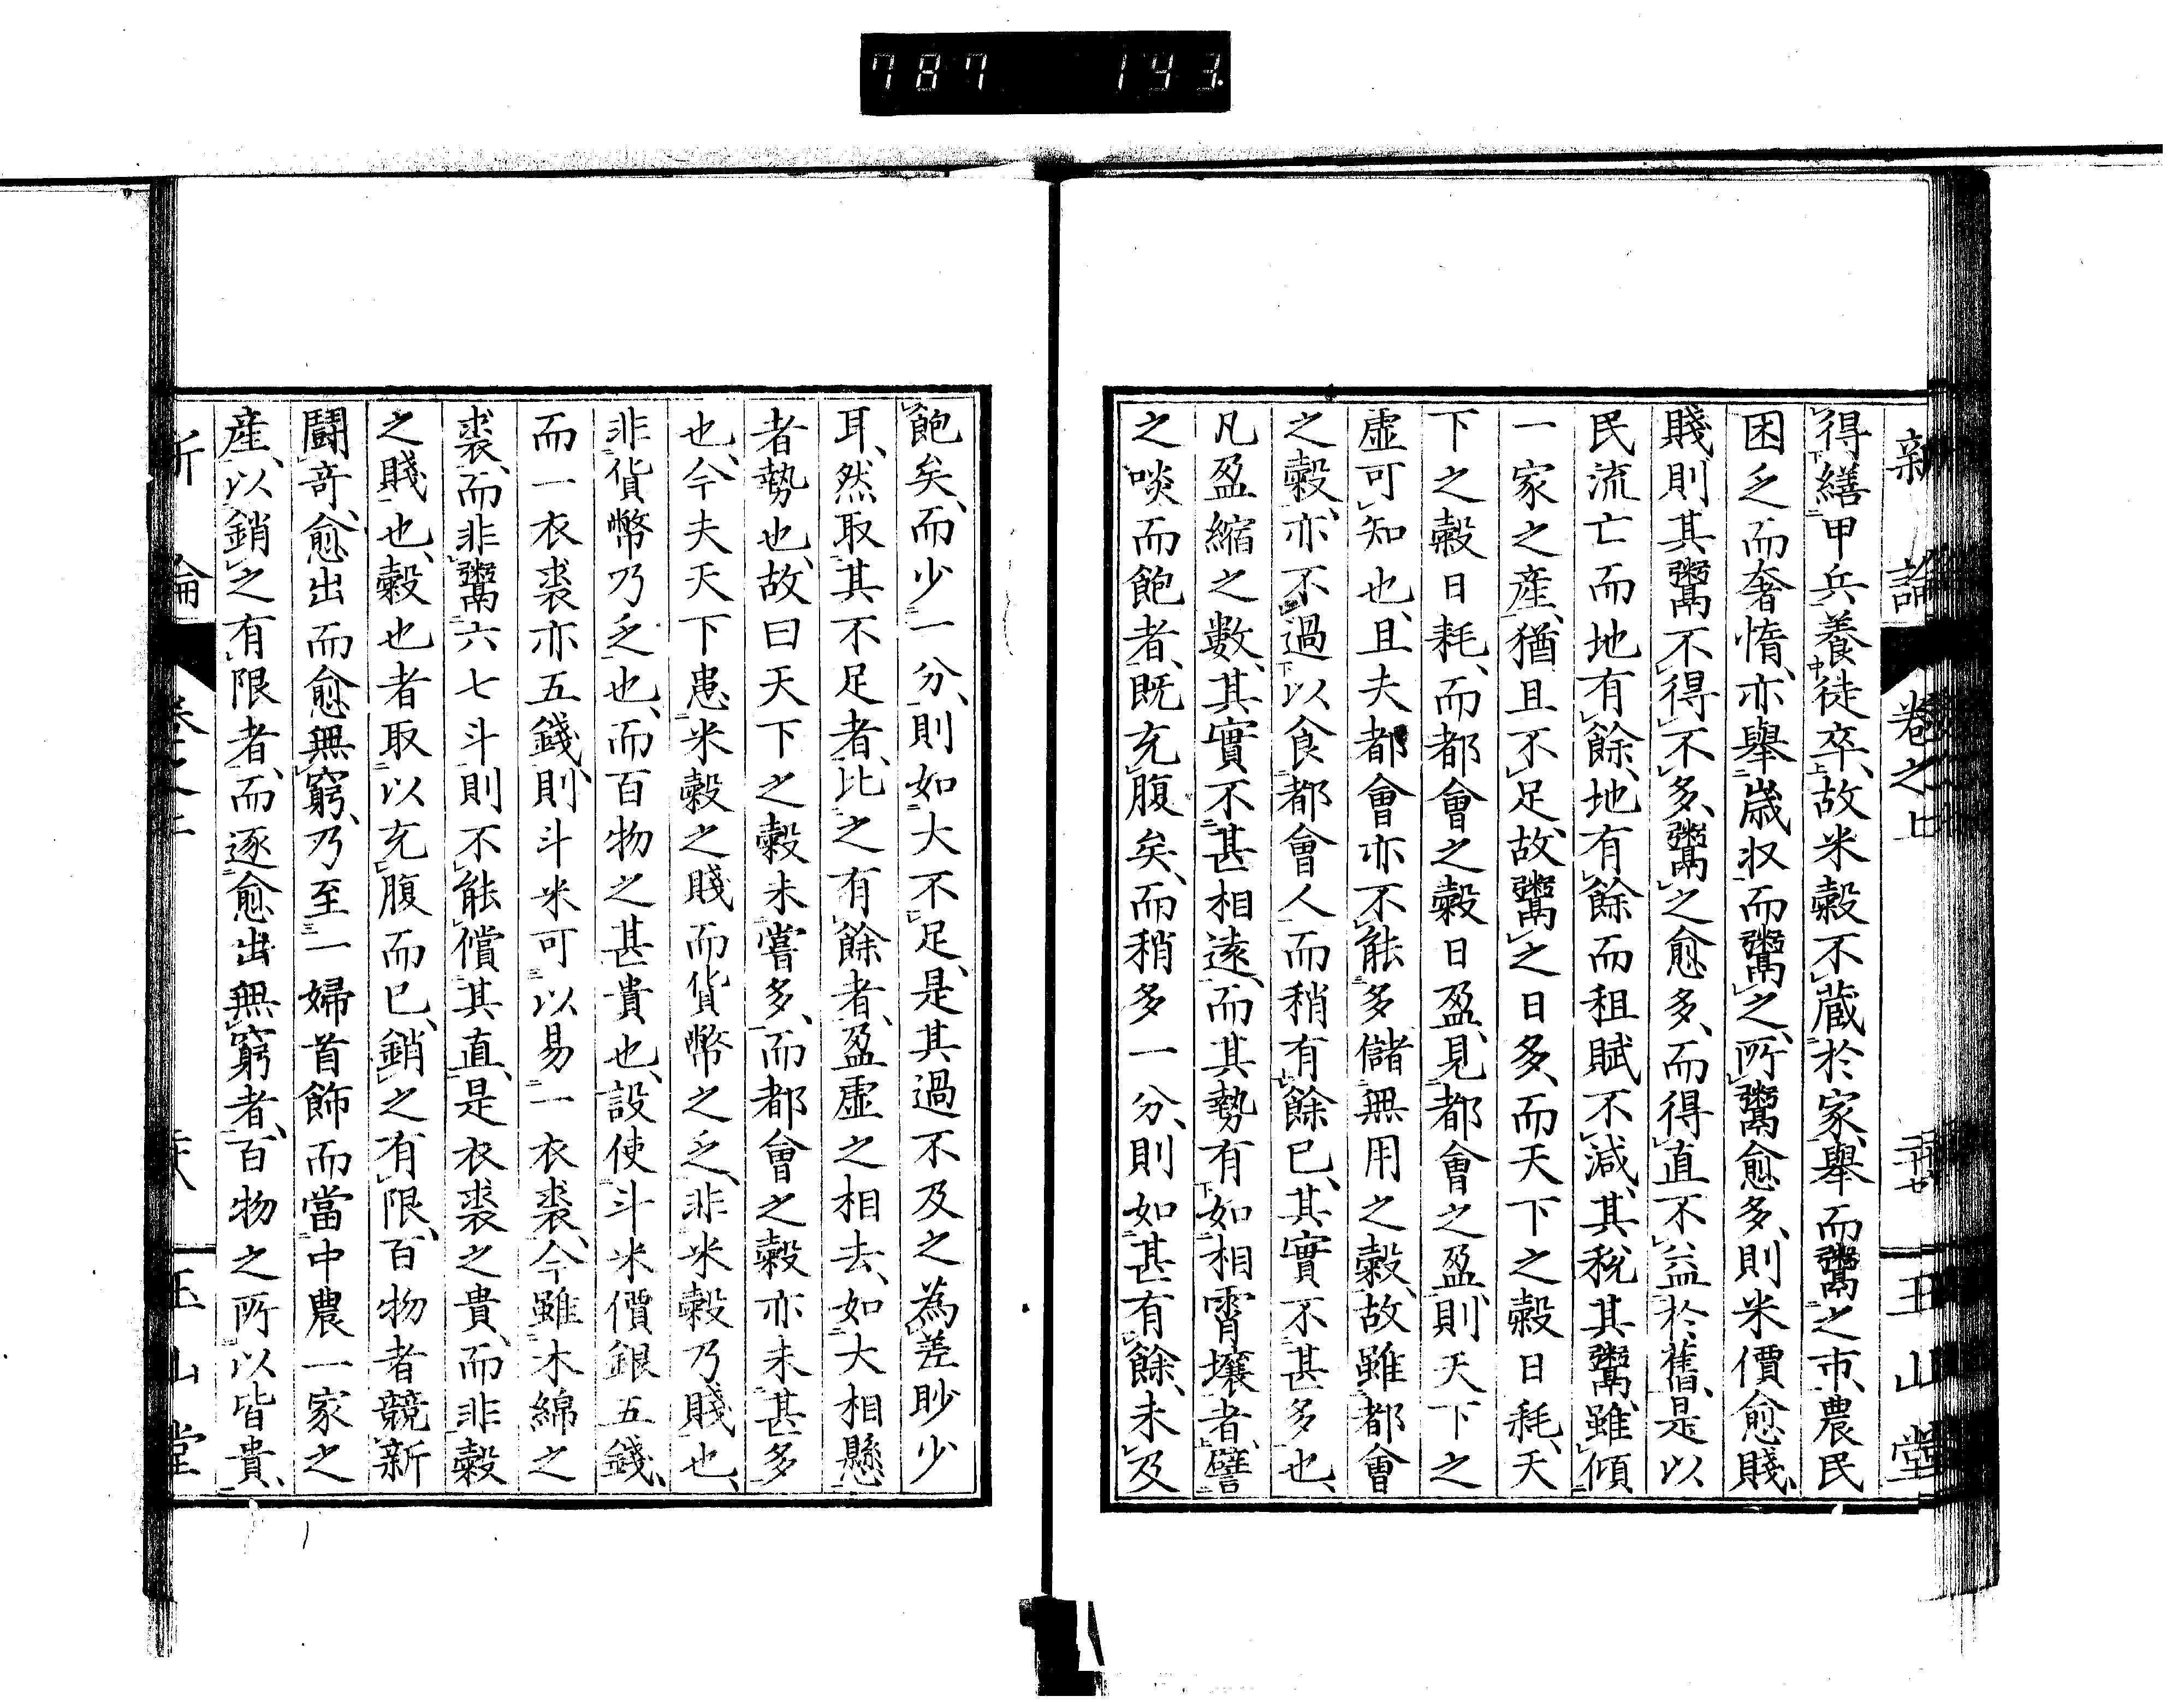 787 143
新論 卷之上 玉山堂
得繕甲兵養徒卒、故米穀不蔵於家、擧而鬻之市、農民
困乏而奢惰、亦擧歳収而鬻之、所鬻愈多、則米價愈賤、
賤則其鬻不得不多、鬻之愈多、而得直不益於舊、是以
民流亡而地有餘、地有餘而租賦不減、其税其鬻、雖傾
一家之産、猶且不足、故鬻之日多、而天下之穀日耗、天
下之穀日耗、而都會之穀日盈、見都會之盈、則天下之
虛可知也、且夫都會亦不能多儲無用之穀、故雖都會
之穀、亦不過以食都會人而稍有餘已、其實不甚多也、
凡盈縮之數、其實不甚相遠、而其勢有如相霄壤者、譬
之啖而飽者、既充腹矣、而稍多一分、則如甚有餘、未及
飽矣、而少一分、則如大不足、是其過不及之為差眇少
耳、然取其不足者、比之有餘者、盈虛之相去、如大相懸
者勢也、故曰天下之穀未嘗多、而都會之穀亦未甚多
也、今夫天下患米穀之賤而貨幣之乏、非米穀乃賤也、
非貨幣乃乏也、而百物之甚貴也、設使斗米價銀五錢、
而一衣裘亦五錢、則斗米可以易一衣裘、今雖木綿之
裘、而非鬻六七斗則不能償其直、是衣裘之貴、而非穀
之賤也、穀也者取以充腹而已、銷之有限、百物者競新
鬪奇、愈出而愈無窮、乃至一婦首飾而當中農一家之
産、以銷之有限者、而逐愈出無窮者、百物之所以皆貴、
新論 玉山堂